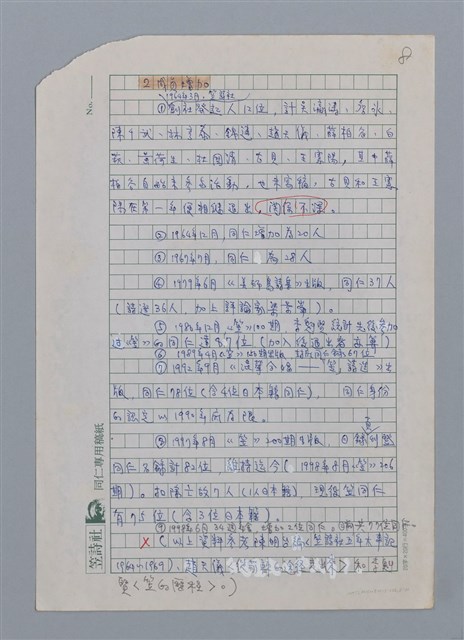 2 同仁增加
1964年3月,笠詩社
①創社發起人12位,計吳瀛濤、詹冰、
陳千武、林亨泰、錦連、趙天儀、薛柏谷、白
萩、黃荷生、杜國清、古貝、王憲陽,其中薛
柏谷自始未參與活動,也未寫稿,古貝和王憲
陽在第一年便相繼退出,關係不深。
②1964年12月,同仁增加為20人
③1967年7月,同仁 為28人
④1979年6月《美麗島詩集》出版,同仁37人
(詩選36人,加上評論家
⑤1980年12月《笠》100期,李魁賢統計先後參加
過《笠》的同仁達87位(加入後退出者亦算)
⑥1989年4月《笠》150期出版,
⑦1992年9月《混聲合唱——「笠」詩選》出
版,同仁78位(含4位日本籍同仁),同仁身份
的認定以1992年底為限。
⑧1997年8月《笠》200期出版,
同仁名錄計82位,維持迄今(1998年8月《笠》206
期)。扣除亡故7人(1人日本籍),現役笠同仁
有75位(含3位日本籍)。
⑨1998年6月34週年,增加2位同仁。
(以上資料參考陳明台編《笠詩社五年大事記
1964~1969》,趙天儀
賢〈笠的歷程〉。)
No.
笠詩社
同仁專用稿紙